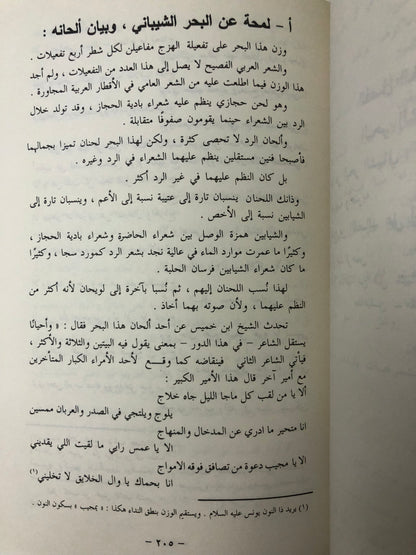 أ - لمحة عن البحر الشيباني ، وبيان ألحانه :
وزن هذا البحر على تفعيلة الهزج مفاعيلن لكل شطر أربع تفعيلات .
والشعر العربي الفصيح لا يصل إلى هذا العدد من التفعيلات ، ولم أجد
هذا الوزن فيما اطلعت عليه من الشعر العامي في الأقطار العربية المجاورة .
وهو لحن حجازي ينظم عليه شعراء بادية الحجاز ، وقد تولد خلال
الرد بين الشعراء حينما يقومون صفوفًا متقابلة .
وألحان الرد لا تحصى كثرة ، ولكن لهذا البحر لحنان تميزا بجمالهما
فأصبحا فنين مستقلين ينظم عليهما الشعراء في الرد وغيره .
بل كان النظم عليهما في غير الرد أكثر .
وذانك اللحنان ينسبان تارة إلى عتيبة نسبة إلى الأعم ، وينسبان تارة إلى
الشيابين نسبة إلى الأخص .
والشيابين همزة الوصل بين شعراء الحاضرة وشعراء بادية الحجاز ،
وكثيرًا ما عمرت موارد الماء في عالية نجد بشعر الرد كمورد سجا ، وكثيرًا
ما كان شعراء الشيابين فرسان الحلبة .
لهذا نُسب اللحنان إليهم ، ثم نُسبا بآخرة إلى لويحان لأنه أكثر من
النظم عليهما ، ولأن صوته بهما أخاذ .
تحدث الشيخ ابن خميس عن أحد ألحان هذا البحر فقال : « وأحيانًا
يستقل الشاعر - في هذا الدور - بمعنى يقول فيه البيتين والثلاثة والأكثر ،
فيأتي الشاعر الثاني فيناقضه كما وقع لأحد الأمراء الكبار المتأخرين
مع أمير آخر قال هذا الأمير الكبير :
ألا يا من لقب كل ماجا الليل جاه خلاج
يلوج ويلتجي في الصدر والعربان ممسين
انا متحير ما ادري عن المدخال والمنهاج
الا يا عمس رايي ما لقيت اللي يقديني
الا يا مجيب دعوة من تصافق فوقه الامواج
انا بحماك يا وال الخلايق لا تخليني (١)
(١) يريد ذا النون يونس عليه السلام . ويستقيم الوزن بنطق النداء هكذا : « بمجيب » بسكون النون .
- ٢٠٥ -